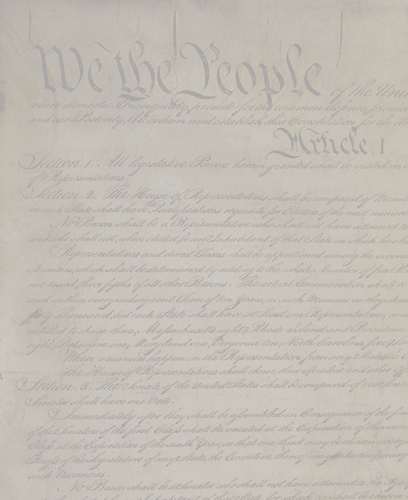 We the People of the Unit
insure domestic Tranquility, provide for the common defence, promo
and our Posterity, do ordain and establish this Constitution for the Un
Article. I.
Section. 1. All legislative Powers herein granted shall be vested in a
of Representatives.
Section. 2. The House of Representatives shall be composed of Mem
in each State shall have Qualifications requisite for Electors of the most numero
No Person shall be a Representative who shall not have attained to
and who shall not, when elected, be an Inhabitant of that State in which he sha
Representatives and direct Taxes shall be apportioned among the several
Numbers, which shall be determined by adding to the whole Number of free P
not taxed, three fifths of all other Persons. The actual Enumeration shall
and within every subsequent Term of ten Years, in such Manner as they sha
thirty Thousand, but each State shall have at Least one Representative; and
entitled to chuse three, Massachusetts eight, Rhode Island and Providence
eight, Delaware one, Maryland six, Virginia ten, North Carolina five, So
When vacancies happen in the Representation from any State, the E
The House of Representatives shall chuse their Speaker and other Off
Section. 3. The Senate of the United States shall be composed of two Sena
Senator shall have one Vote.
Immediately after they shall be assembled in Consequence of the firs
of the Senators of the first Class shall be vacated at the Expiration of the
Class at the Expiration of the sixth Year, so that one third may be chosen
of the Legislature of any State, the Executive thereof may make temporary
such Vacancies.
No Person shall be a Senator who shall not have attained to the Age